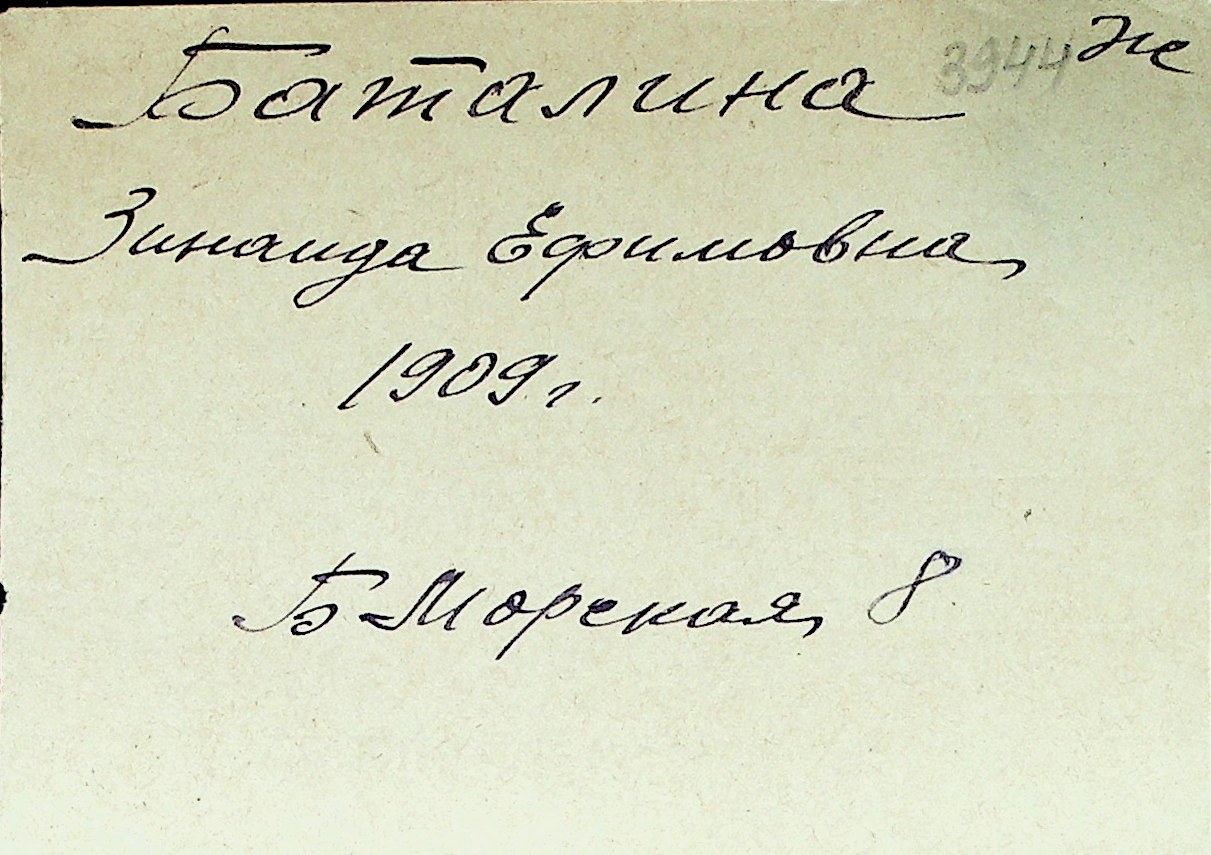 Баталина 3944 ж
Зинаида Ефимовна,
1909 г.
Б-Морская, 8